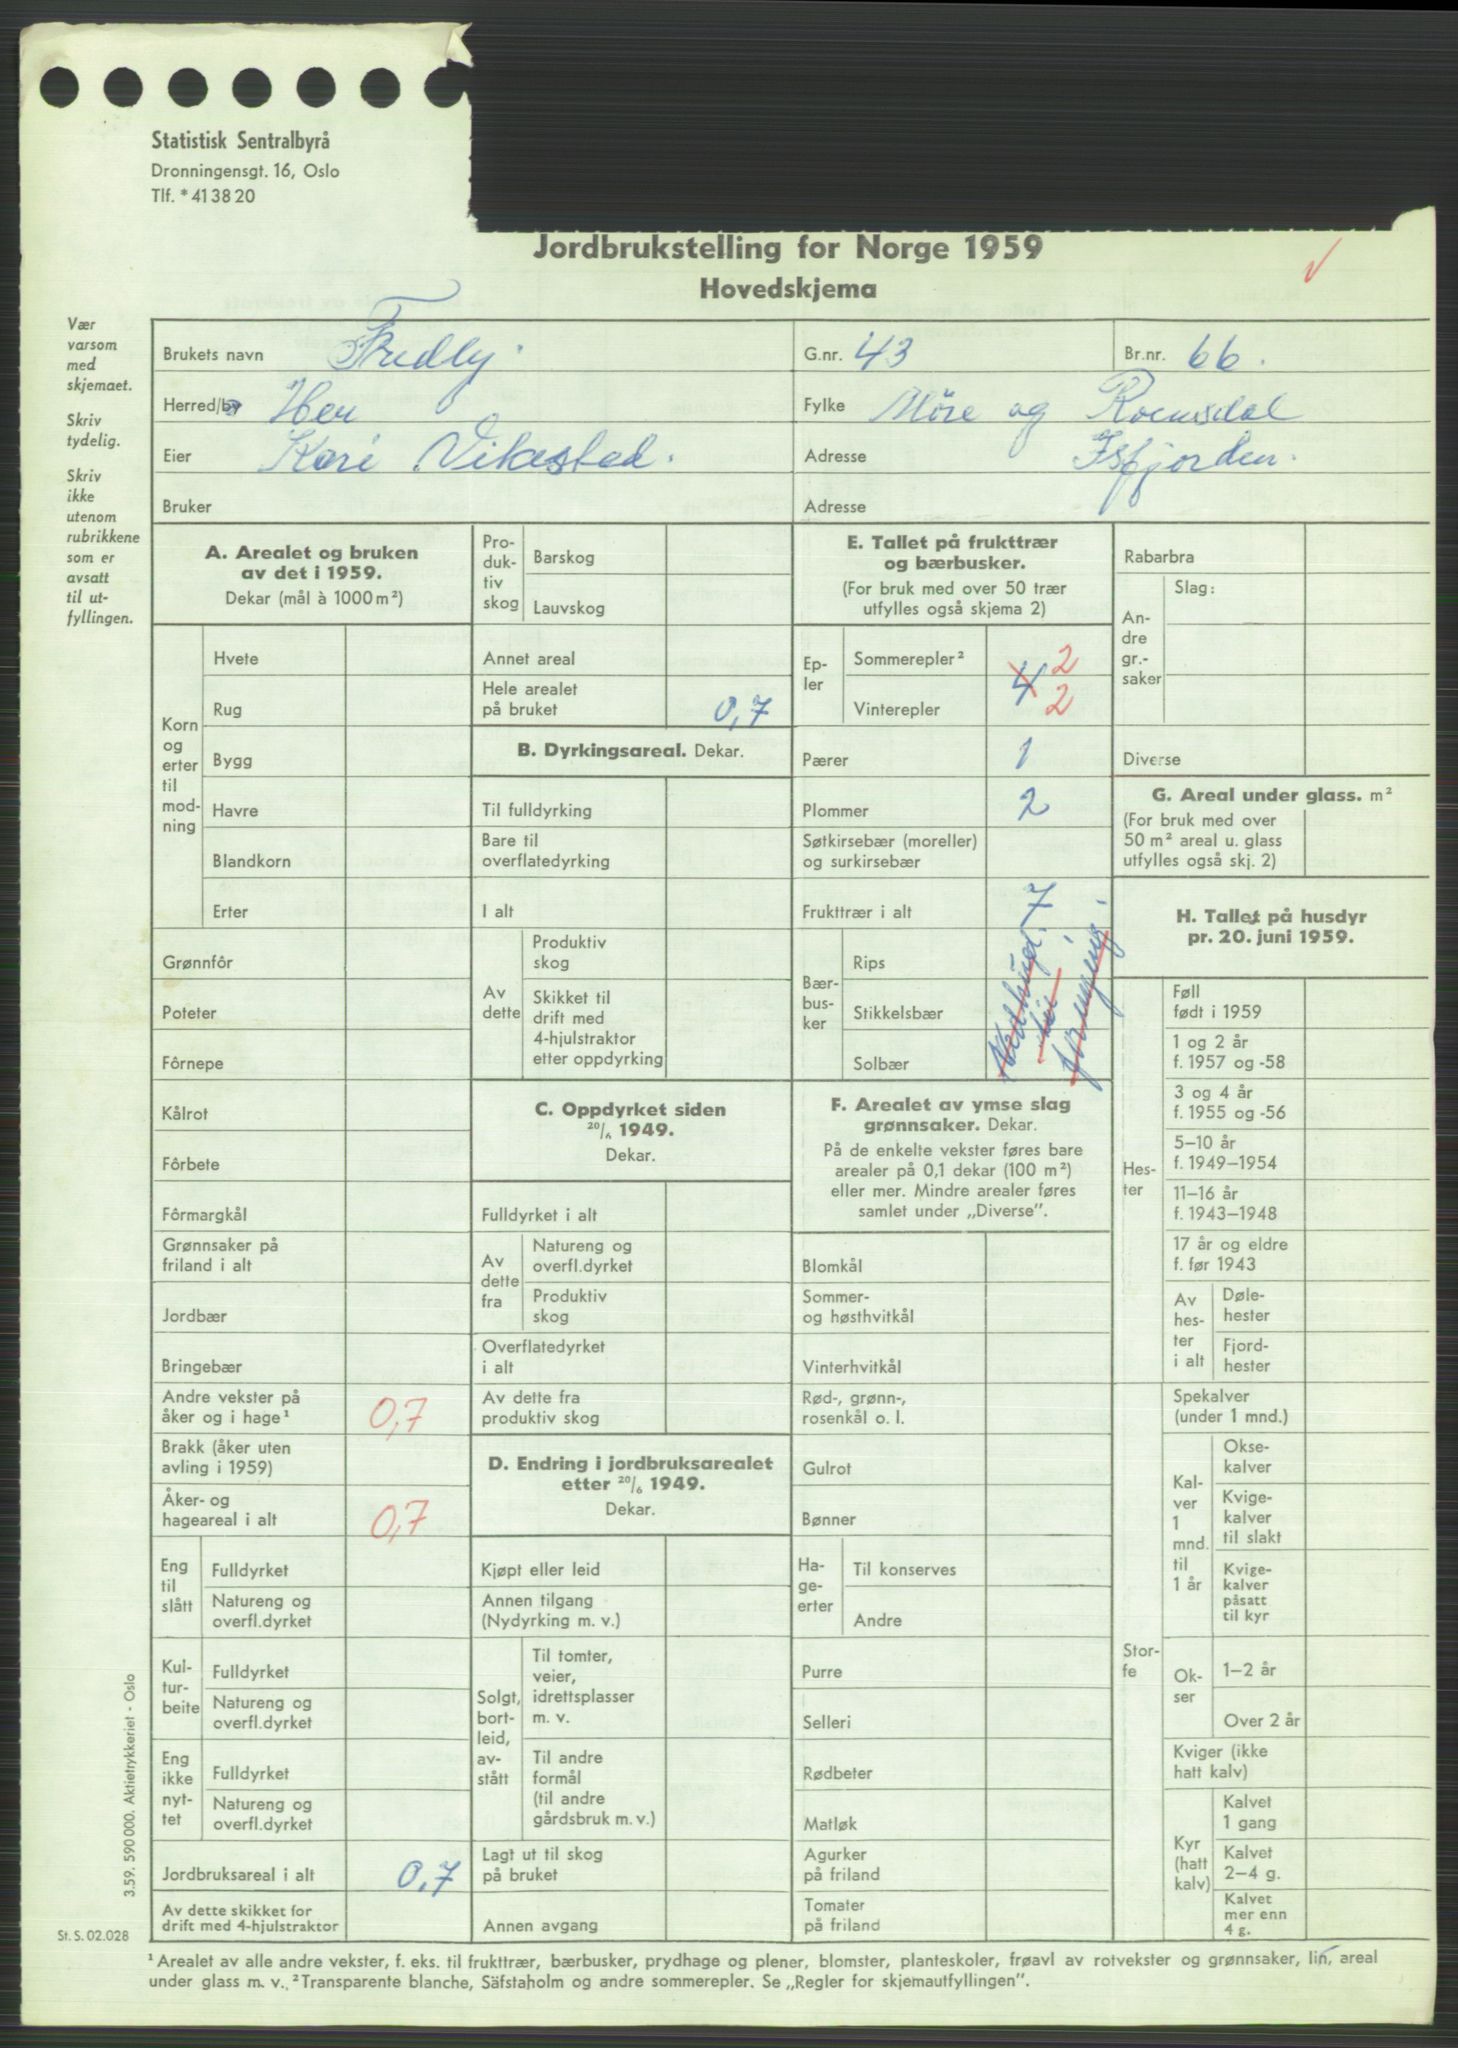 Statistisk Sentralbyrå
Dronningensgt. 16, Oslo
Tlf. * 41 38 20
Jordbrukstelling for Norge 1959
Hovedskjema
Vær
varsom
med
skjemaet.
Skriv
tydelig.
Skriv
ikke
utenom
rubrikkene
som er
avsatt
til ut-
fyllingen.
Brukets navn Fredly. G.nr. 43 Br.nr. 66.
Herred/by Hen Fylke Möre og Romsdal
Eier Kari Vikestad. Adresse Isfjorden.
Bruker Adresse
A. Arealet og bruken
av det i 1959.
Dekar (mål à 1000 m²)
Korn
og
erter
til
mod-
ning
Hvete
Rug
Bygg
Havre
Blandkorn
Erter
Grønnfôr
Poteter
Fôrnepe
Kålrot
Fôrbete
Fôrmargkål
Grønnsaker på
friland i alt
Jordbær
Bringebær
Andre vekster på
åker og i hage¹ 0,7
Brakk (åker uten
avling i 1959)
Åker- og
hageareal i alt 0,7
Eng
til
slått
Fulldyrket
Natureng og
overfl.dyrket
Kul-
tur-
beite
Fulldyrket
Natureng og
overfl.dyrket
Eng
ikke
nyt-
tet
Fulldyrket
Natureng og
overfl.dyrket
Jordbruksareal i alt 0,7
Av dette skikket for
drift med 4-hjulstraktor
Pro-
duk-
tiv
skog
Barskog
Lauvskog
Annet areal
Hele arealet
på bruket 0,7
B. Dyrkingsareal. Dekar.
Til fulldyrking
Bare til
overflatedyrking
I alt
Av
dette
Produktiv
skog
Skikket til
drift med
4-hjulstraktor
etter oppdyrking
C. Oppdyrket siden
20/6 1949.
Dekar.
Fulldyrket i alt
Av
dette
fra
Natureng og
overfl.dyrket
Produktiv
skog
Overflatedyrket
i alt
Av dette fra
produktiv skog
D. Endring i jordbruksarealet
etter 20/6 1949.
Dekar.
Kjøpt eller leid
Annen tilgang
(Nydyrking m. v.)
Solgt,
bort-
leid,
av-
stått
Til tomter,
veier,
idrettsplasser
m. v.
Til andre
formål
(til andre
gårdsbruk m. v.)
Lagt ut til skog
på bruket
Annen avgang
E. Tallet på frukttrær
og bærbusker.
(For bruk med over 50 trær
utfylles også skjema 2)
Ep-
ler
Sommerepler² 2
4
Vinterepler 2
Pærer 1
Plommer 2
Søtkirsebær (moreller)
og surkirsebær
Frukttrær i alt 7
Bær-
bus-
ker
Rips
Stikkelsbær
Solbær
F. Arealet av ymse slag
grønnsaker. Dekar.
På de enkelte vekster føres bare
arealer på 0,1 dekar (100 m²)
eller mer. Mindre arealer føres
samlet under „Diverse”.
Blomkål
Sommer-
og høsthvitkål
Vinterhvitkål
Rød-, grønn-,
rosenkål o. l.
Gulrot
Bønner
Ha-
ge-
erter
Til konserves
Andre
Purre
Selleri
Rødbeter
Matløk
Agurker
på friland
Tomater
på friland
Rabarbra
An-
dre
gr.-
saker
Slag:
Diverse
G. Areal under glass. m²
(For bruk med over
50 m² areal u. glass
utfylles også skj. 2)
H. Tallet på husdyr
pr. 20. juni 1959.
Hes-
ter
Føll
født i 1959
1 og 2 år
f. 1957 og -58
3 og 4 år
f. 1955 og -56
5–10 år
f. 1949–1954
11–16 år
f. 1943–1948
17 år og eldre
f. før 1943
Av
hes-
ter
i alt
Døle-
hester
Fjord-
hester
Stor-
fe
Spekalver
(under 1 mnd.)
Kal-
ver
1
mnd.
til
1 år
Okse-
kalver
Kvige-
kalver
til slakt
Kvige-
kalver
påsatt
til kyr
Ok-
ser
1–2 år
Over 2 år
Kviger (ikke
hatt kalv)
Kyr
(hatt
kalv)
Kalvet
1 gang
Kalvet
2–4 g.
Kalvet
mer enn
4 g.
3.59. 590 000. Aktietrykkeriet - Oslo
St. S. 02.028
¹ Arealet av alle andre vekster, f. eks. til frukttrær, bærbusker, prydhage og plener, blomster, planteskoler, frøavl av rotvekster og grønnsaker, lin, areal
under glass m. v.. ² Transparente blanche, Säfstaholm og andre sommerepler. Se „Regler for skjemautfyllingen”.